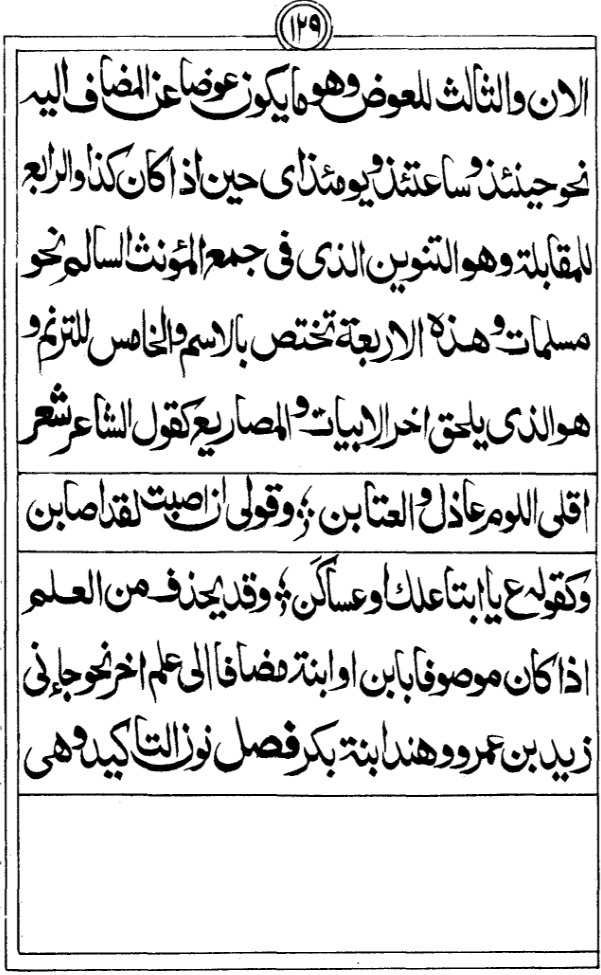 ١٢٩
الان والثالث للعوض وهو ما يكون عوضا عن المضاف اليه
نحو حينئذ وساعتئذ ويومئذ اى حين اذا كان كذا والرابع
للمقابلة وهو التنوين الذى فى جمع المؤنث السالم نحو
مسلمات وهذه الاربعة تختص بالاسم والخامس للترنم و
هو الذى يلحق اخر الابيات والمصاريع كقول الشاعر شعر
اقلى اللوم عاذل والعتابن ؛ وقولى ان اصبت لقد اصابن
وكقوله ع يا ابتا علك او عساكن ؛ وقد يحذف من العلم
اذا كان موصوفا بابن او ابنة مضافا الى علم اخر نحو جاءنى
زيد بن عمرو وهند ابنة بكر فصل نون التاكيد وهى